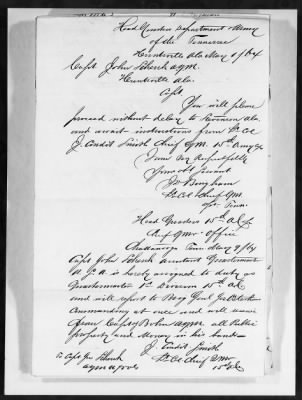 Head Quarters Department & Army
of the Tennessee
Huntsville Ala May 1/64
Capt John Schenk aqm.
Huntsville Ala.
Capt
You will please
proceed without delay to Stevenson Ala.
and await instructions from Lt Col
J. Condit Smith Chief Qm. 15th Army
I am Very Respectfully
Your obt Servant
Jd Bingham
Lt Col & Chief Qm
Tenn
Head Quarters 15th A.C.
Chief Qmrs Office
Chattanooga Tenn May 9/64
Capt John Schenk assistant Quartermaster
is hereby assigned to duty as
Quartermaster 1st Division 15th A.C.
and will report to Brig Genl
Commanding at once and will receive
from Capt aqm all Public
property and money in his hands
J. Condit Smith
Lt Col & Chief Qmr
15th A.C.
To Capt Jno Schenk